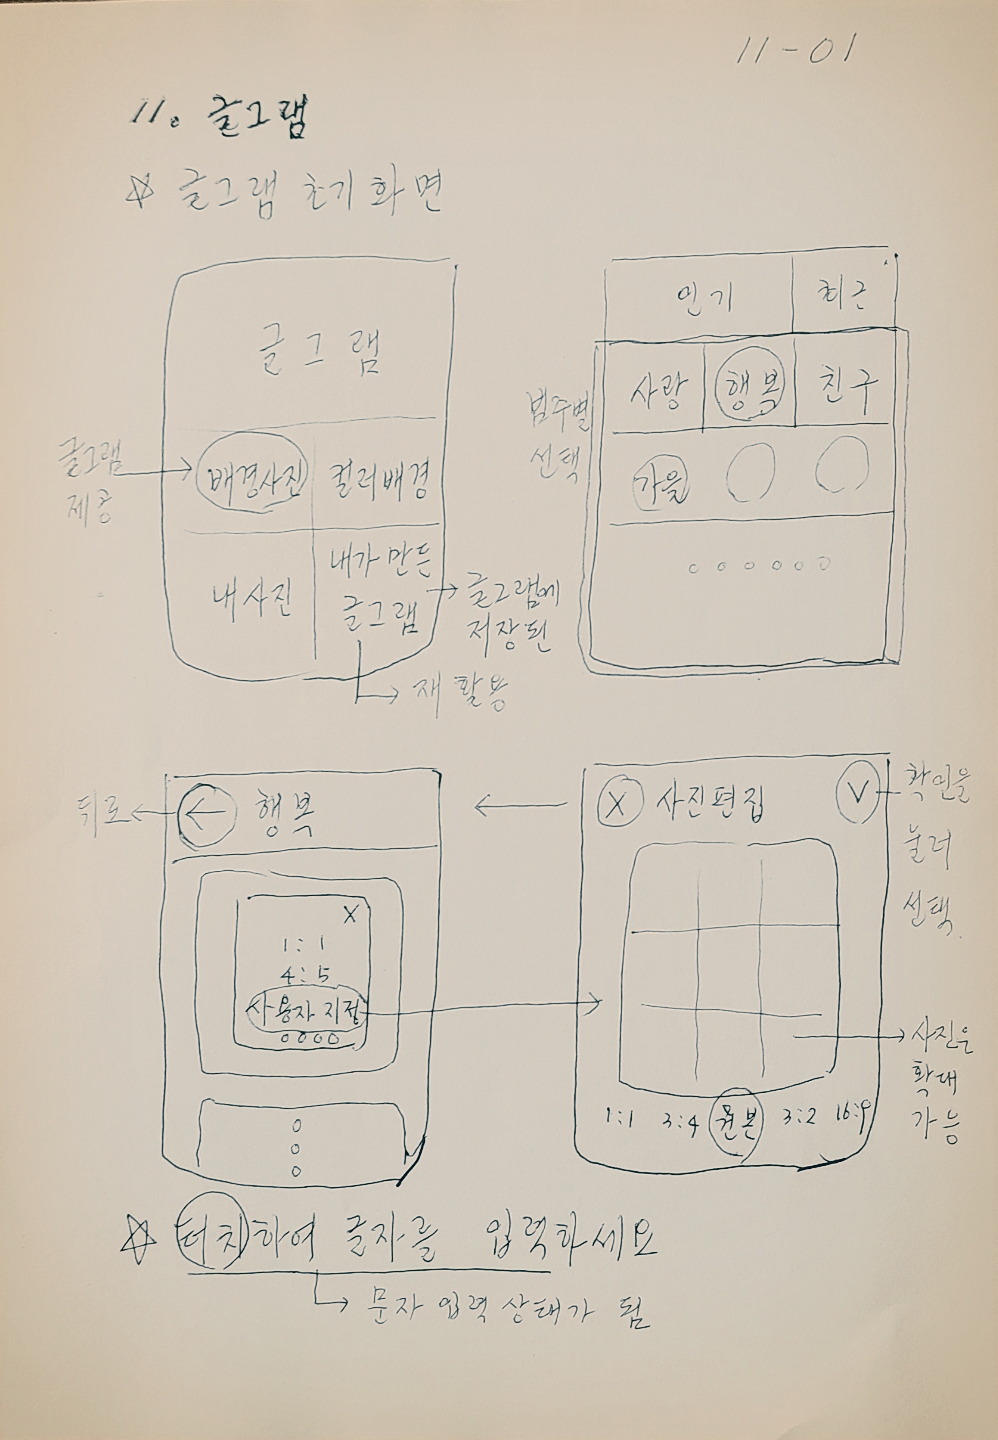 11-01
11. 글그램
☆ 글그램 초기화면
글그램
글그램
제공
배경사진
컬러배경
내사진
내가 만든
글그램
글그램에
저장된
재활용
인기
최근
범주별
선택
사랑
행복
친구
가을
뒤로
←
행복
X
1:1
4:5
사용자 지정
X
사진편집
V
확인을
눌러
선택.
사진은
확대
가능
1:1
3:4
원본
3:2
16:9
☆ 터치하여 글자를 입력하세요
문자 입력 상태가 됨